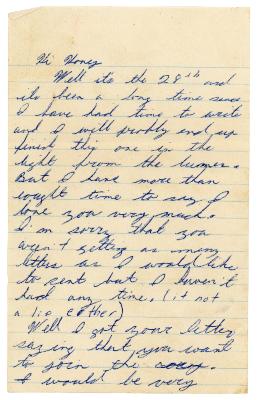 Hi Honey
Well its the 29th and
its been a long time since
I have had time to write
and I will probly end up
finish this one in the
light from the
But I have more than
time to say I
love you very much.
I'm sorry that you
aren't getting as many
letters as I would like
to sent but I haven't
had any time. (it not
a lie ether)
Well I got your letter
saying that you want
to join the
I would be very